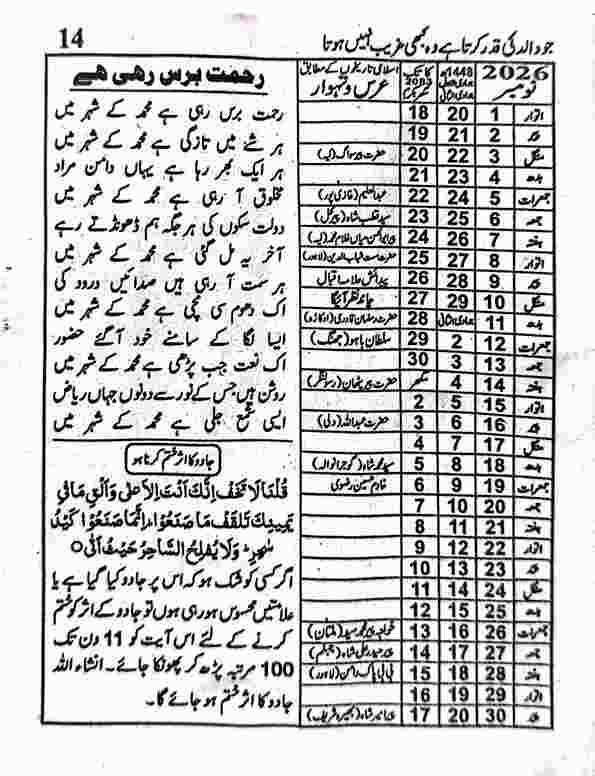 جو والد کی قدر کرتا ہے وہ کبھی غریب نہیں ہوتا
14
رحمت برس رہی ہے
رحمت برس رہی ہے محمد کے شہر میں
ہر شئے میں تازگی ہے محمد کے شہر میں
ہر ایک بھر رہا ہے یہاں دامن مراد
مخلوق آ رہی ہے محمد کے شہر میں
دولت سکوں کی ہر جگہ ہم ڈھونڈتے رہے
آخر یہ مل گئی ہے محمد کے شہر میں
ہر سمت آ رہی ہیں صدائیں درود کی
اک دھوم سی مچی ہے محمد کے شہر میں
ایسا لگا کے سامنے خود آ گئے حضور
اک نعت جب پڑھی ہے محمد کے شہر میں
روشن ہیں جس کے نور سے دونوں جہاں ریاض
ایسی شمع جلی ہے محمد کے شہر میں
جادو کا اثر ختم کرنا ہو
قُلْنَا لَا تَخَفْ اِنَّكَ اَنْتَ الْاَعْلٰى وَاَلْقِ مَا فِیْ
یَمِیْنِكَ تَلْقَفْ مَا صَنَعُوْا ؕ اِنَّمَا صَنَعُوْا كَیْدُ
سٰحِرٍ ؕ وَلَا یُفْلِحُ السَّاحِرُ حَیْثُ اَتٰى ○
اگر کسی کو شک ہو کہ اس پر جادو کیا گیا ہے یا
علامتیں محسوس ہو رہی ہوں تو جادو کے اثر کو ختم
کرنے کے لئے اس آیت کو 11 دن تک
100 مرتبہ پڑھ کر پھونکا جائے۔ انشاء اللہ
جادو کا اثر ختم ہو جائے گا۔
2026 نومبر 1448ھ جمادی الاول جمادی الثانی کاتک 2083 مگھر
اسلامی تاریخوں کے مطابق عرس و تہوار
اتوار 1 20 18
پیر 2 21 19
منگل 3 22 20
بدھ 4 23 21
جمعرات 5 24 22 عبدالعلیم (غازی پور)
جمعہ 6 25 23 سید قطب شاہ (پیر محل)
ہفتہ 7 26 24
اتوار 8 27 25
پیر 9 28 26 پیدائش علامہ اقبال
منگل 10 29 27 چاند نظر آئیگا
بدھ 11 جمادی الثانی 28 حضرت رمضان قادری (اوکاڑہ)
جمعرات 12 2 29 سلطان باہو (جھنگ)
جمعہ 13 3 30
ہفتہ 14 4 مگھر
اتوار 15 5 2
پیر 16 6 3 حضرت عبداللہ (دہلی)
منگل 17 7 4
بدھ 18 8 5 سید محمد شاہ (گوجرانوالہ)
جمعرات 19 9 6 خادم حسین رضوی
جمعہ 20 10 7
ہفتہ 21 11 8
اتوار 22 12 9
پیر 23 13 10
منگل 24 14 11
بدھ 25 15 12
جمعرات 26 16 13 خواجہ پیر محمد سید (ملتان)
جمعہ 27 17 14 پیر حیدر علی شاہ (جہلم)
ہفتہ 28 18 15 بی بی پاک دامن (لاہور)
اتوار 29 19 16
پیر 30 20 17 پیر امیر شاہ (بھیرہ شریف)